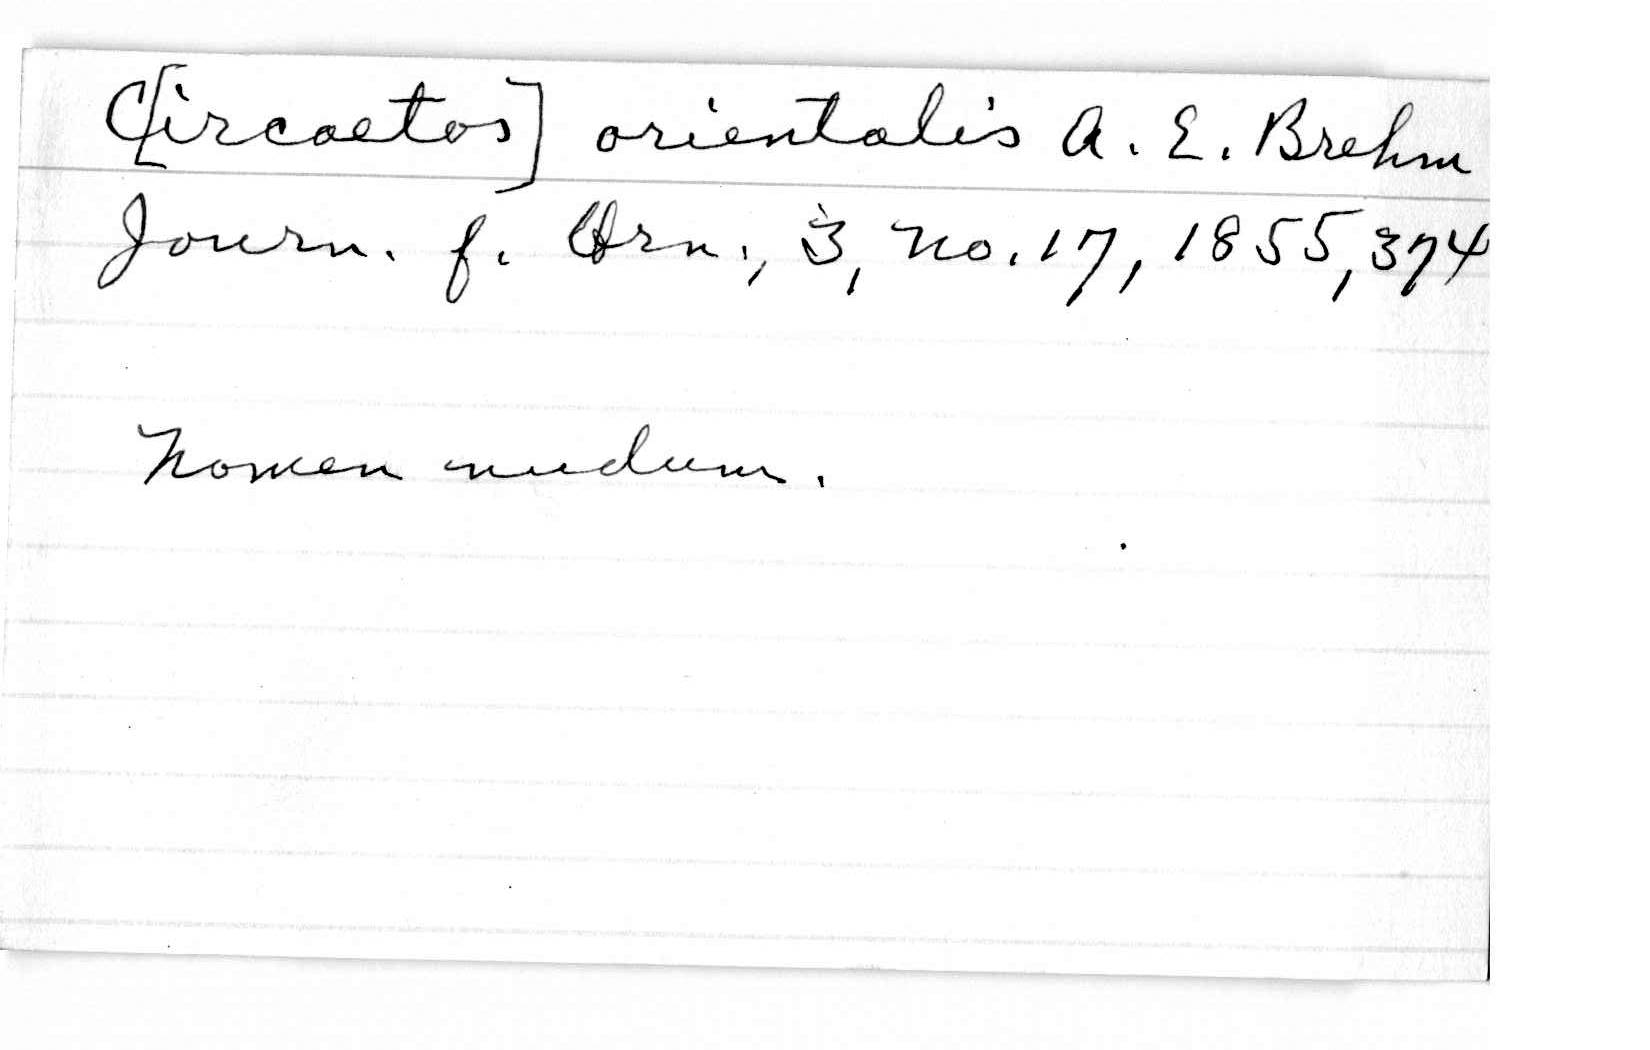 C[ircaetos] orientalis A. E. Brehm
Journ. f. Orn., 3, no. 17, 1855, 374
Nomen nudum.